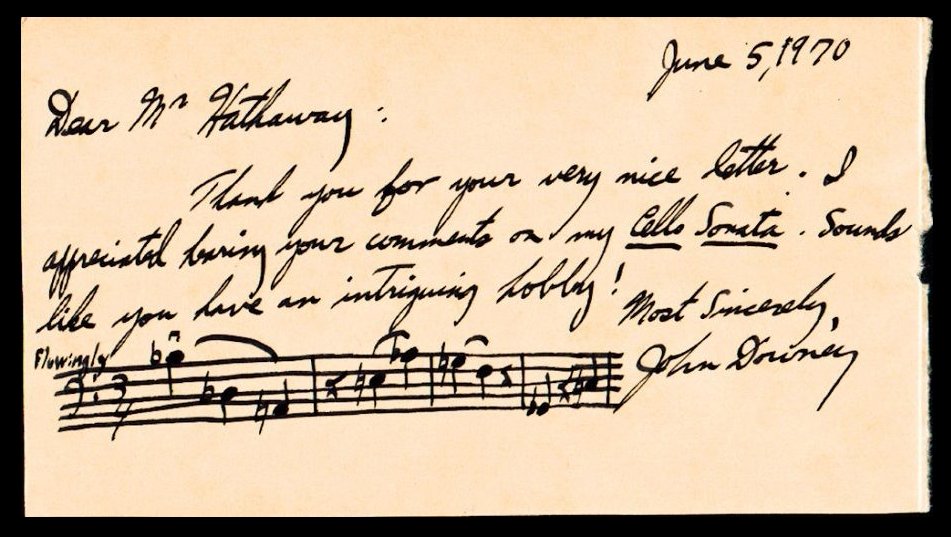 June 5, 1970
Dear Mr Hathaway:
Thank you for your very nice letter. I
appreciated hearing your comments on my Cello Sonata. Sounds
like you have an intriguing hobby!
Most Sincerely,
John Downey
Flowingly
3
4